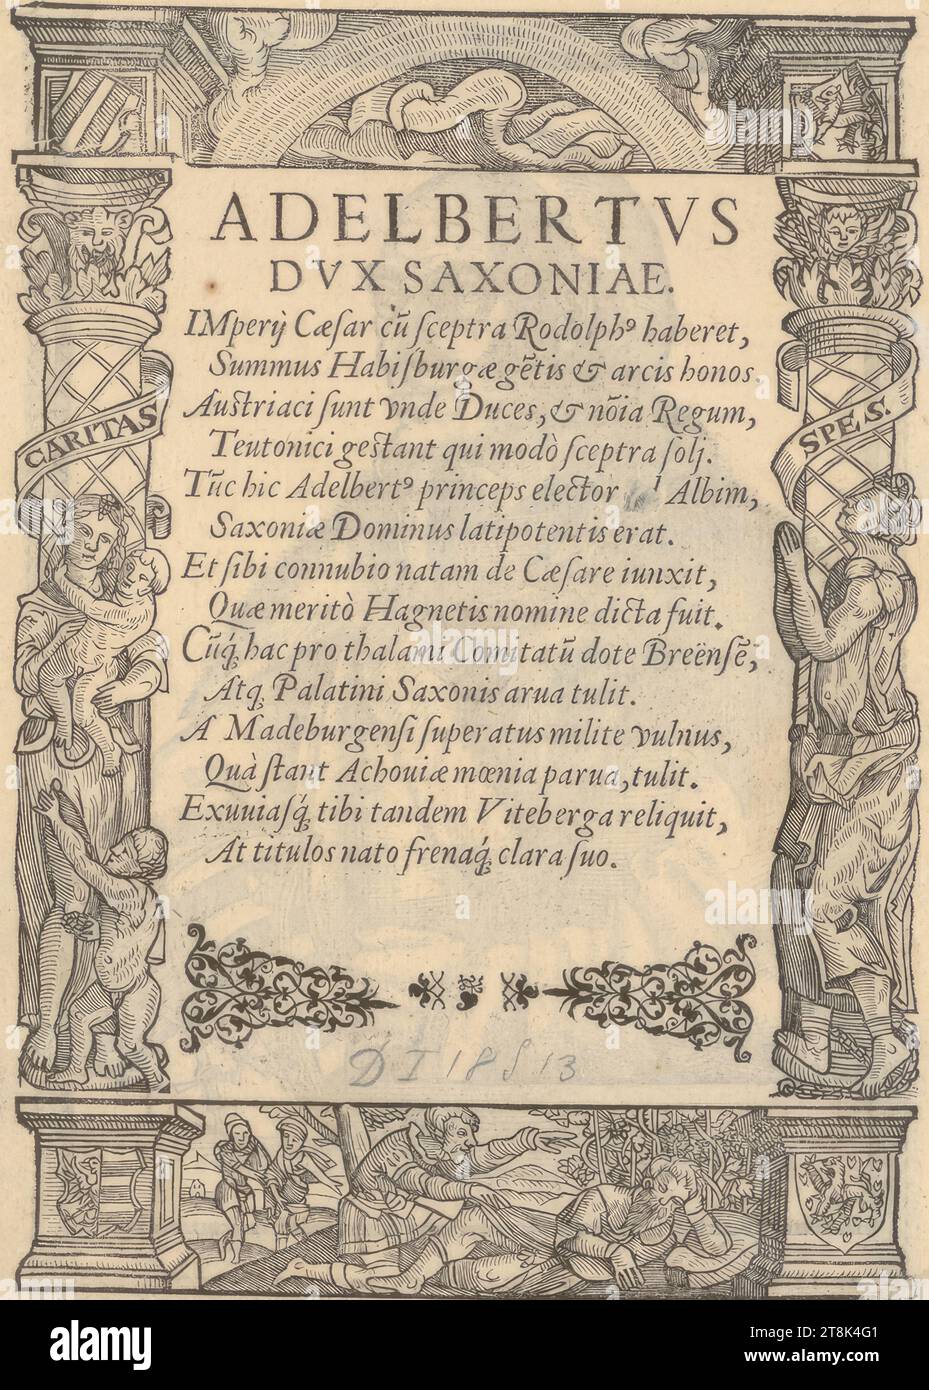 ADELBERTVS
DVX SAXONIAE.
IMperij Cæsar cũ sceptra Rodolphꝰ haberet,
Summus Habisburgæ gẽtis & arcis honos.
Austriaci sunt vnde Duces, & nõia Regum,
Teutonici gestant qui modò sceptra solj.
CARITAS
SPES.
Tũc hic Adelbertꝰ princeps elector Albim,
Saxoniæ Dominus latipotentis erat.
Et sibi connubio natam de Cæsare iunxit,
Quæ meritò Hagnetis nomine dicta fuit.
Cũq́ hac pro thalami Comitatũ dote Breënsẽ,
Atq Palatini Saxonis arua tulit.
A Madeburgensi superatus milite vulnus,
Quà stant Achouiæ mœnia parua, tulit.
Exuuiasq́ tibi tandem Viteberga reliquit,
At titulos nato frenaq́ clara suo.
alamy
alamy
Image ID: 2T8K4G1
www.alamy.com